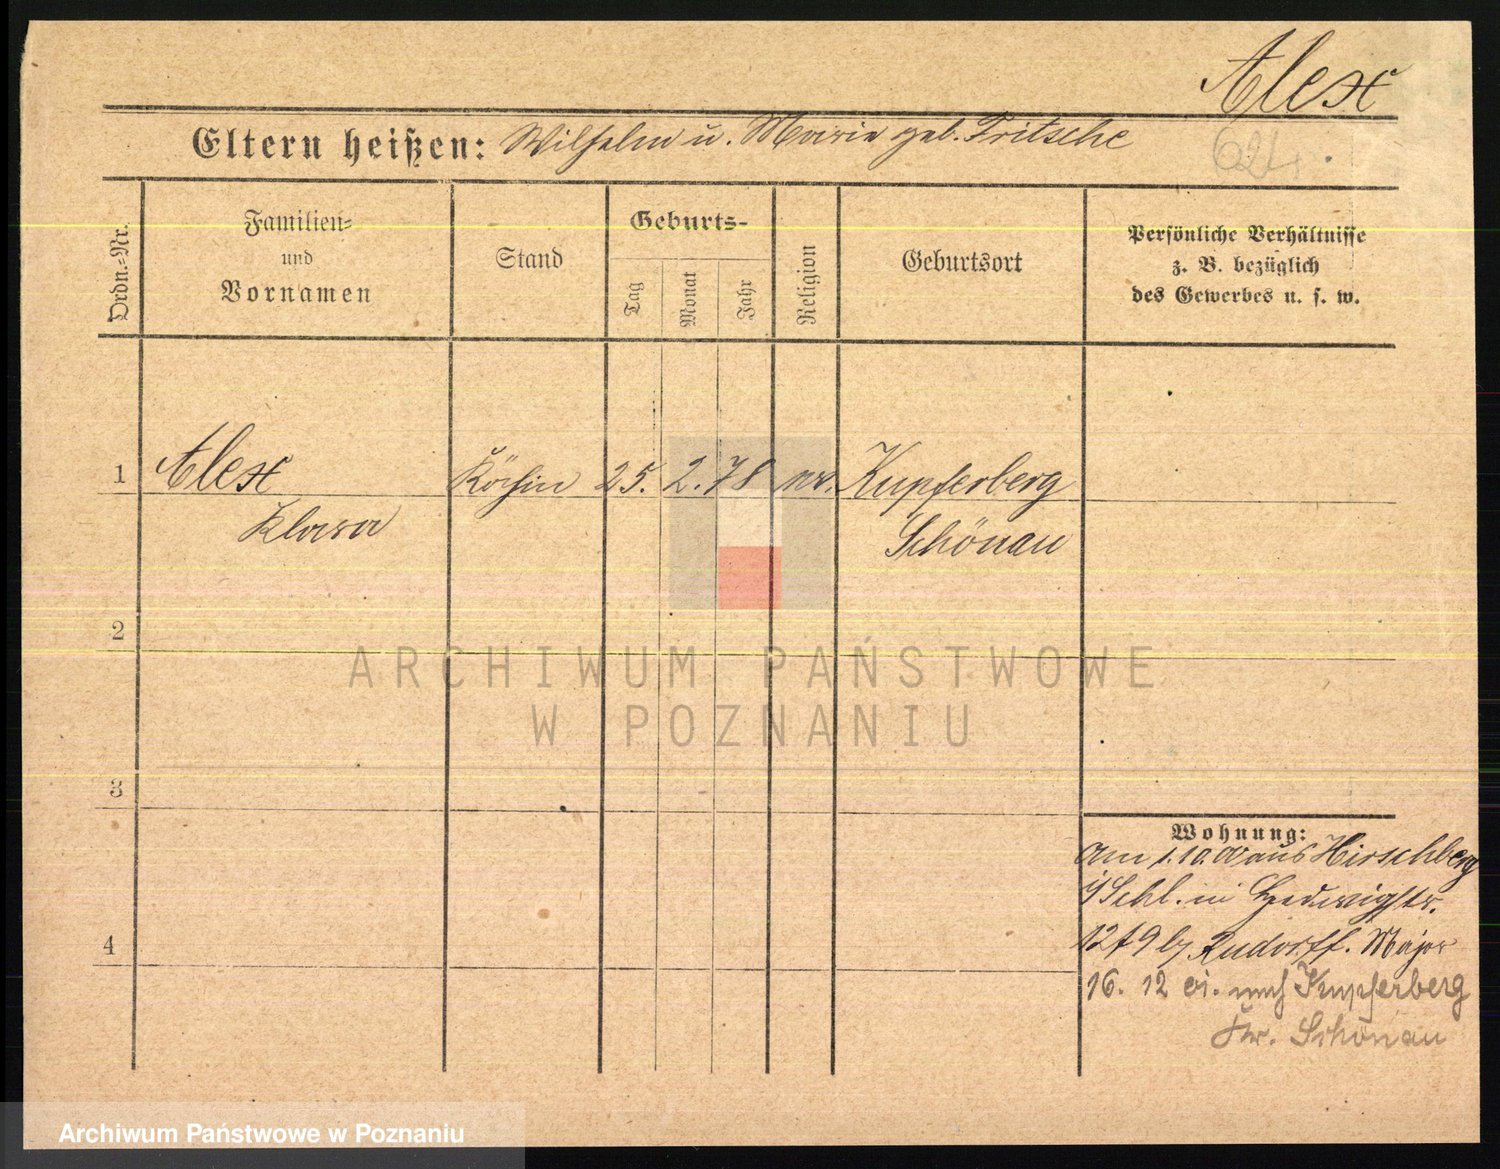 Alex
Eltern heißen: Wilhelm u. Marie geb. Fritsche
624.
Ordn.=Nr.
Familien=
und
Vornamen
Stand
Geburts-
Tag
Monat
Jahr
Religion
Geburtsort
Persönliche Verhältnisse
z. B. bezüglich
des Gewerbes u. s. w.
1 Alex Köchin 25. 2. 78 ev. Kupferberg
Klara Schönau
2
ARCHIWUM PAŃSTWOWE
W POZNANIU
3
Wohnung:
Am 1.10.00 aus Hirschberg
i/Schl. in Hedwigstr.
12 b/ Rudorff. Major
16. 12 01. nach Kupferberg
Kr. Schönau
4
Archiwum Państwowe w Poznaniu